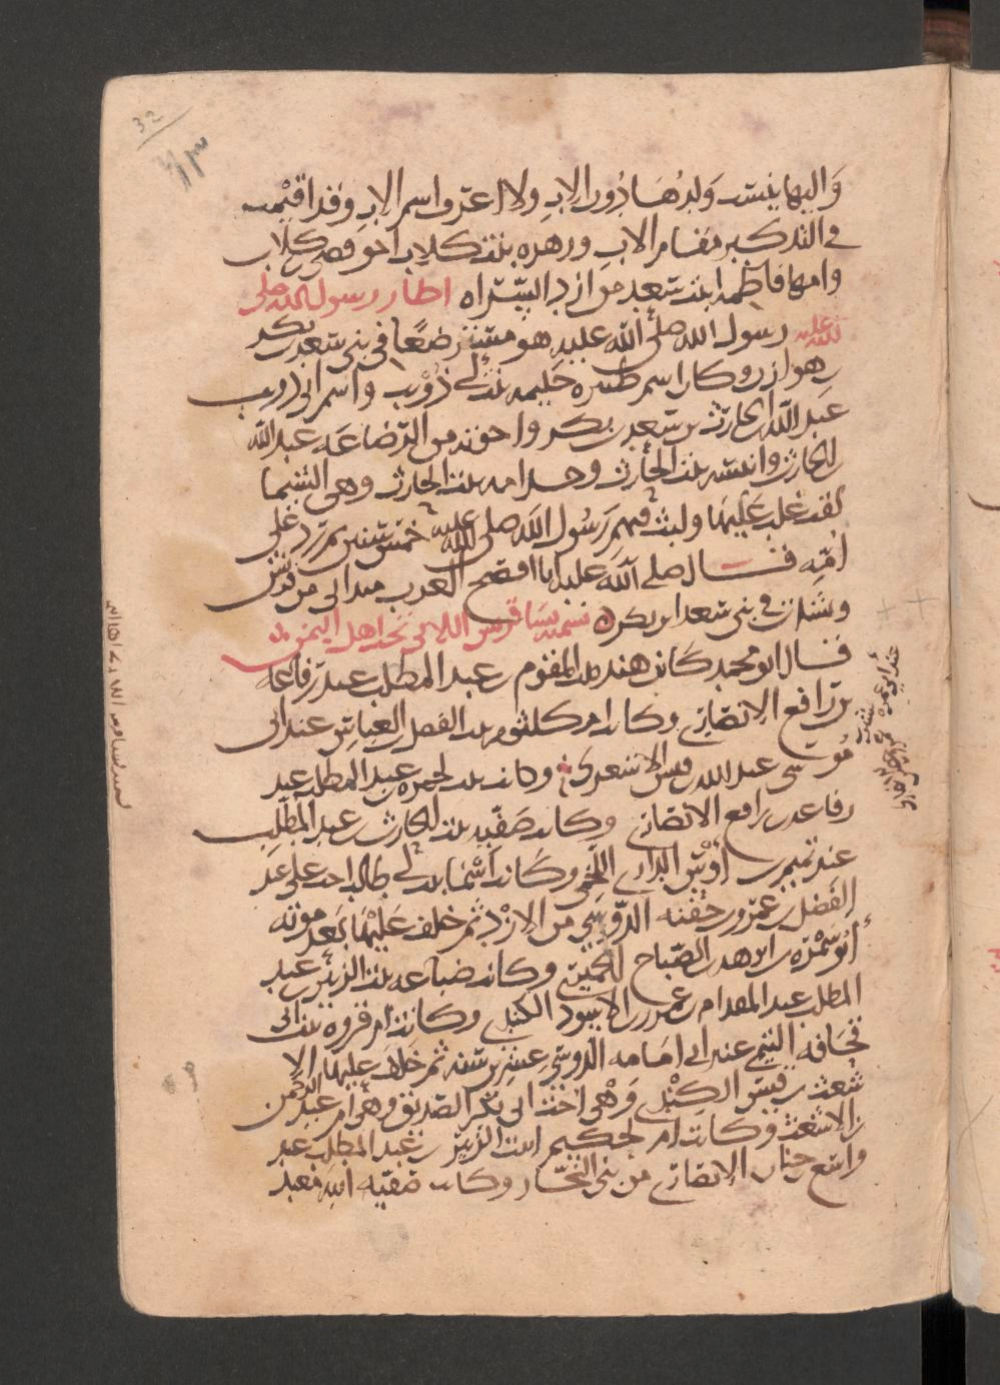 32
واليها ينسب ولدها دون الاب ولا اعرف اسم الاب وقد اقيمت
في التذكير مقام الاب وزهره بنت كلاب اخو قصي بن كلاب
وامها فاطمة ابنت سعد من ازد السراه اظار رسول الله صلى
الله عليه رسول الله صلى الله عليه هو مسترضعا في بني سعد بن بكر
بن هوازن وكان اسم ظئره حليمه بنت ابي ذؤيب واسم ابي ذويب
عبد الله بن الحارث بن سعد بن بكر واخوته من الرضاعه عبد الله
بن الحارث وانيسه بنت الحارث وحدامه بنت الحارث وهي الشيما
لقب غلب عليها ولبث فيهم رسول الله صلى الله عليه خمس سنين ثم رد على
امه فقال صلى الله عليه انا افصح العرب ميداني من قريش
ونشات في بني سعد بن بكر تسميه نسا قريش اللاتي تحت اهل اليمن
قال ابو محمد كانت هند بنت المقوم بن عبد المطلب عند رفاعه
بن رافع الانصاري وكانت ام كلثوم بنت الفضل بن العباس عند ابي
موسى عبد الله بن قيس الاشعري وكانت بنت لحمزه بن عبد المطلب عند
رفاعه بن رافع الانصاري وكانت صفيه بنت الحارث بن عبد المطلب
عند تميم بن اوس الداري اللخمي وكانت اسما بنت ابي طالب اخت علي عند
الفضل بن عمرو بن حفنه الدوسي من الازد ثم خلف عليها بعد موته
ابو سمره بن ابرهه بن الصباح الحميري وكانت ضباعه بنت الزبير بن عبد
المطلب عند المقدام بن عمرو بن الاسود الكندي وكانت ام فروه بنت ابي
قحافه التيمي عند ابي امامه الدوسي عشرين سنه ثم خلف عليها الا
شعث بن قيس الكندي وهي اخت ابي بكر الصديق وهي ام عبد الرحمن
بن الاشعث وكانت ام الحكيم ابنت الزبير بن عبد المطلب عند
واسع بن حبان الانصاري من بني النجار وكانت صفيه ابنه معبد